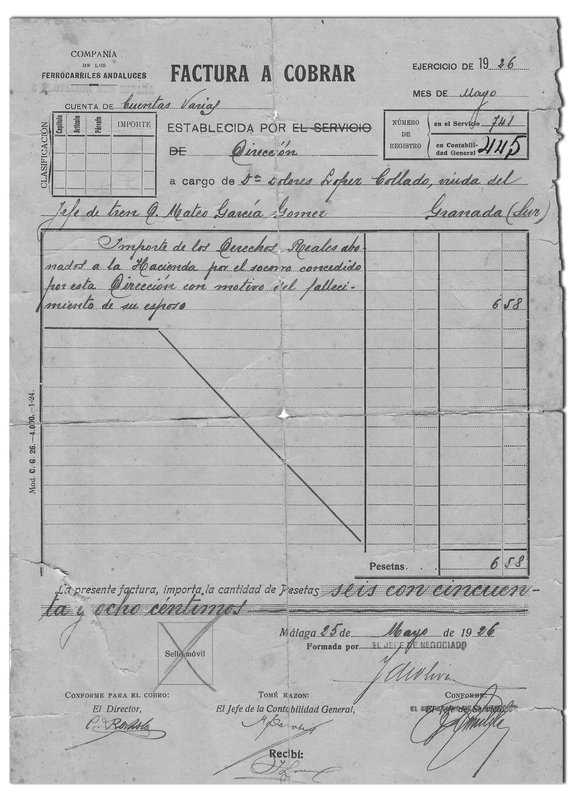 COMPAÑÍA
DE LOS
FERROCARRILES ANDALUCES
FACTURA A COBRAR
EJERCICIO DE 1926
MES DE Mayo
CUENTA DE Cuentas Varias
CLASIFICACIÓN
Capítulo
Artículo
Párrafo
IMPORTE
ESTABLECIDA POR EL SERVICIO
DE Dirección
NÚMERO
DE
REGISTRO
en el Servicio 741
en Contabili-
dad General 445
a cargo de Dª Dolores López Collado, viuda del
Jefe de tren D. Mateo García Gomez Granada (Sur)
Importe de los Derechos Reales abo-
nados a la Hacienda por el socorro concedido
por esta Dirección con motivo del falleci-
miento de su esposo 6 58
Mod. C. G. 26.—4.000.—1-24.
Pesetas. . . 6 58
La presente factura, importa la cantidad de Pesetas seis con cincuen-
ta y ocho centimos
Málaga 25 de Mayo de 1926
Sello móvil
Formada por EL JEFE DE NEGOCIADO
CONFORME PARA EL COBRO:
El Director,
TOMÉ RAZON:
El Jefe de la Contabilidad General,
CONFORME:
Recibí: